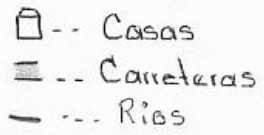 -- Casas
-- Carreteras
--- Rios